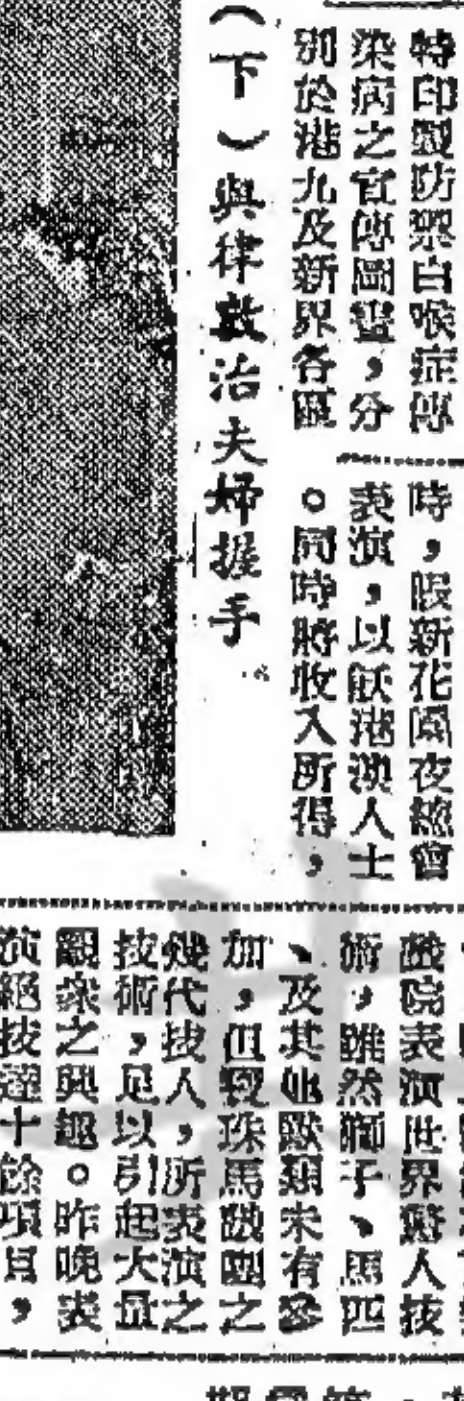 特印製防禦白喉症傳
染病之宣傳圖畫，分
別於港九及新界各區
（下）與律敦治夫婦握手
時，假新花園夜總會
表演，以飫港澳人士
。同時將收入所得，
戲院表演世界驚人技
術，雖然獅子、馬匹
、及其他獸類未有參
加，但寶珠馬戲團之
幾代技人，所表演之
技術，足以引起大量
觀衆之興趣。昨晚表
演絕技達十餘項目，